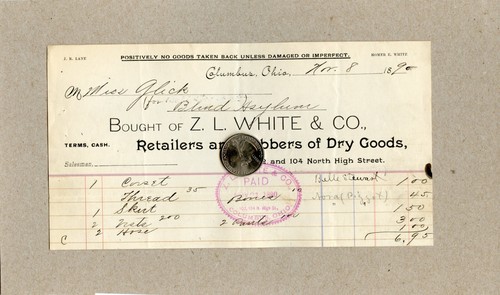 J. E. LANE POSITIVELY NO GOODS TAKEN BACK UNLESS DAMAGED OR IMPERFECT. WHITE
Columbus, Ohio, Nov. 8 1890
M Miss Glick
for Blind Asylum
BOUGHT OF Z. L. WHITE & CO.,
TERMS, CASH. Retailers and Jobbers of Dry Goods,
Salesman 104 North High Street.
1 Corset Belle Stewart 1.00
Thread 35 Bones 10 .45
PAID
1 Skirt 1.50
2 200 2 3.00
2 Hose 1.00
C 6.95